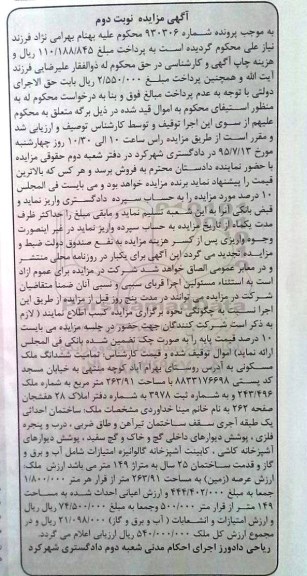 آگهی مزایده نوبت دوم
به موجب پرونده شماره ۹۳۰۳۰۶ محکوم علیه بهنام بهرامی نژاد فرزند
نیاز علی محکوم گردیده است به پرداخت مبلغ ۱۱۰/۱۸۸/۸۴۵ ریال و
هزینه چاپ آگهی و کارشناسی در حق محکوم له ذوالفقار علیرضایی فرزند
آیت الله و همچنین پرداخت مبلغ ۲/۵۵۰/۰۰۰ ریال بابت حق الاجرای
دولتی با توجه به عدم پرداخت مبالغ فوق و بنا به درخواست محکوم له به
منظور استیفای محکوم به اموال قید شده در ذیل برگه متعلق به محکوم
علیهم از سوی این اجرا توقیف و توسط کارشناس توصیف و ارزیابی شد
و مقرر است از طریق مزایده راس ساعت ۱۰ الی ۱۰/۳۰ روز چهارشنبه
مورخ ۹۵/۷/۱۳ در دادگستری شهرکرد در دفتر شعبه دوم حقوقی مزایده
با حضور نماینده دادستان محترم به فروش برسد و هر کس که بالاترین
قیمت را پیشنهاد نماید برنده مزایده خواهد بود و می بایست فی المجلس
۱۰ درصد مورد مزایده را به حساب سپرده دادگستری واریز نماید و
قبض بانکی آنرا به این شعبه تسلیم نماید و مابقی مبلغ را حداکثر ظرف
مدت یکماه از تاریخ مزایده به حساب سپرده واریز نماید در غیر اینصورت
وجوه واریزی پس از کسر هزینه مزایده به نفع صندوق دولت ضبط و
مزایده تجدید می گردد این آگهی برای یکبار در روزنامه محلی منتشر
و در معابر عمومی الصاق خواهد شد شرکت در مزایده برای عموم آزاد
است به استثناء مسئولین اجرا قربای سببی و نسبی آنان ضمنا متقاضیان
شرکت در مزایده می توانند در مدت پنج روز قبل از مزایده از طریق این
اجرا نسبت به چگونگی نحوه برگزاری مزایده کسب اطلاع نمایند ( لازم
به ذکر است شرکت کنندگان جهت حضور در جلسه مزایده می بایست
۱۰ درصد قیمت پایه را به صورت چک تضمین شده بانکی فی المجلس
ارائه نمایند) اموال توقیف شده و قیمت کارشناس: تمامیت ششدانگ ملک
مسکونی به آدرس روستای بهرام آباد کوچه منتهی به خیابان مسجد
کد پستی ۸۸۳۳۱۷۶۶۹۸ با مساحت ۲۶۳/۹۱ متر مربع به شماره ملک
۲۴۳/۴۹۶ و به شماره ثبت ۳۹۷۸ به شماره دفتر املاک ۲۸ هفتجان
صفحه ۲۶۲ به نام خانم مینا خداوردی مشخصات ملک: ساختمان احداثی
یک طبقه آجری سقف ساختمان تیرآهن و طاق ضربی ، درب و پنجره
فلزی ، پوشش دیوارهای داخلی گچ و خاک و گچ سفید ، پوشش دیوارهای
آشپزخانه کاشی ، کابینت آشپزخانه گالوانیزه امتیازات شامل آب و برق و
گاز و قدمت ساختمان ۲۵ سال به متراژ ۱۴۹ متر می باشد ارزش ملک:
ارزش عرصه (زمین) به مساحت ۲۶۳/۹۱ متر از قرار هر متر ۱/۸۰۰/۰۰۰
جمعا به مبلغ ۴۴۴/۴۰۲/۰۰۰ و ارزش اعیانی احداث شده به مساحت
۱۴۹ متر از قرار متر ۵۰۰/۰۰۰ وجمعا به مبلغ ۷۴/۵۰۰/۰۰۰ ریال
و ارزش امتیازات و انشعابات ( آب و برق و گاز) ۲۱/۰۹۸/۰۰۰ ریال و در
مجموع ارزش کل ملک ۵۴۰/۰۰۰/۰۰۰ ملک ریال ارزیابی اعلام می گردد.
ریاحی دادورز اجرای احکام مدنی شعبه دوم دادگستری شهرکرد